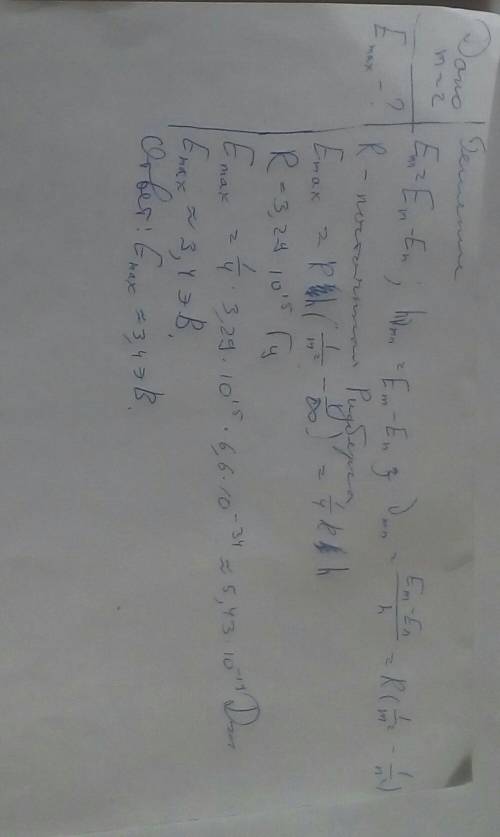 Дано
m = 2
E max - ?
Решение
Em = Em - En ; hνmn = Em - En ; νmn = (Em - En)/h = R(1/m² - 1/n²)
R - постоянная Ридберга
E max = Rh(1/m² - 1/∞) = 1/4 Rh
R = 3,29 · 10¹⁵ Гц
E max = 1/4 · 3,29 · 10¹⁵ · 6,6 · 10⁻³⁴ ≈ 5,43 · 10⁻¹⁹ Дж
E max ≈ 3,4 эВ.
Ответ: E max ≈ 3,4 эВ.